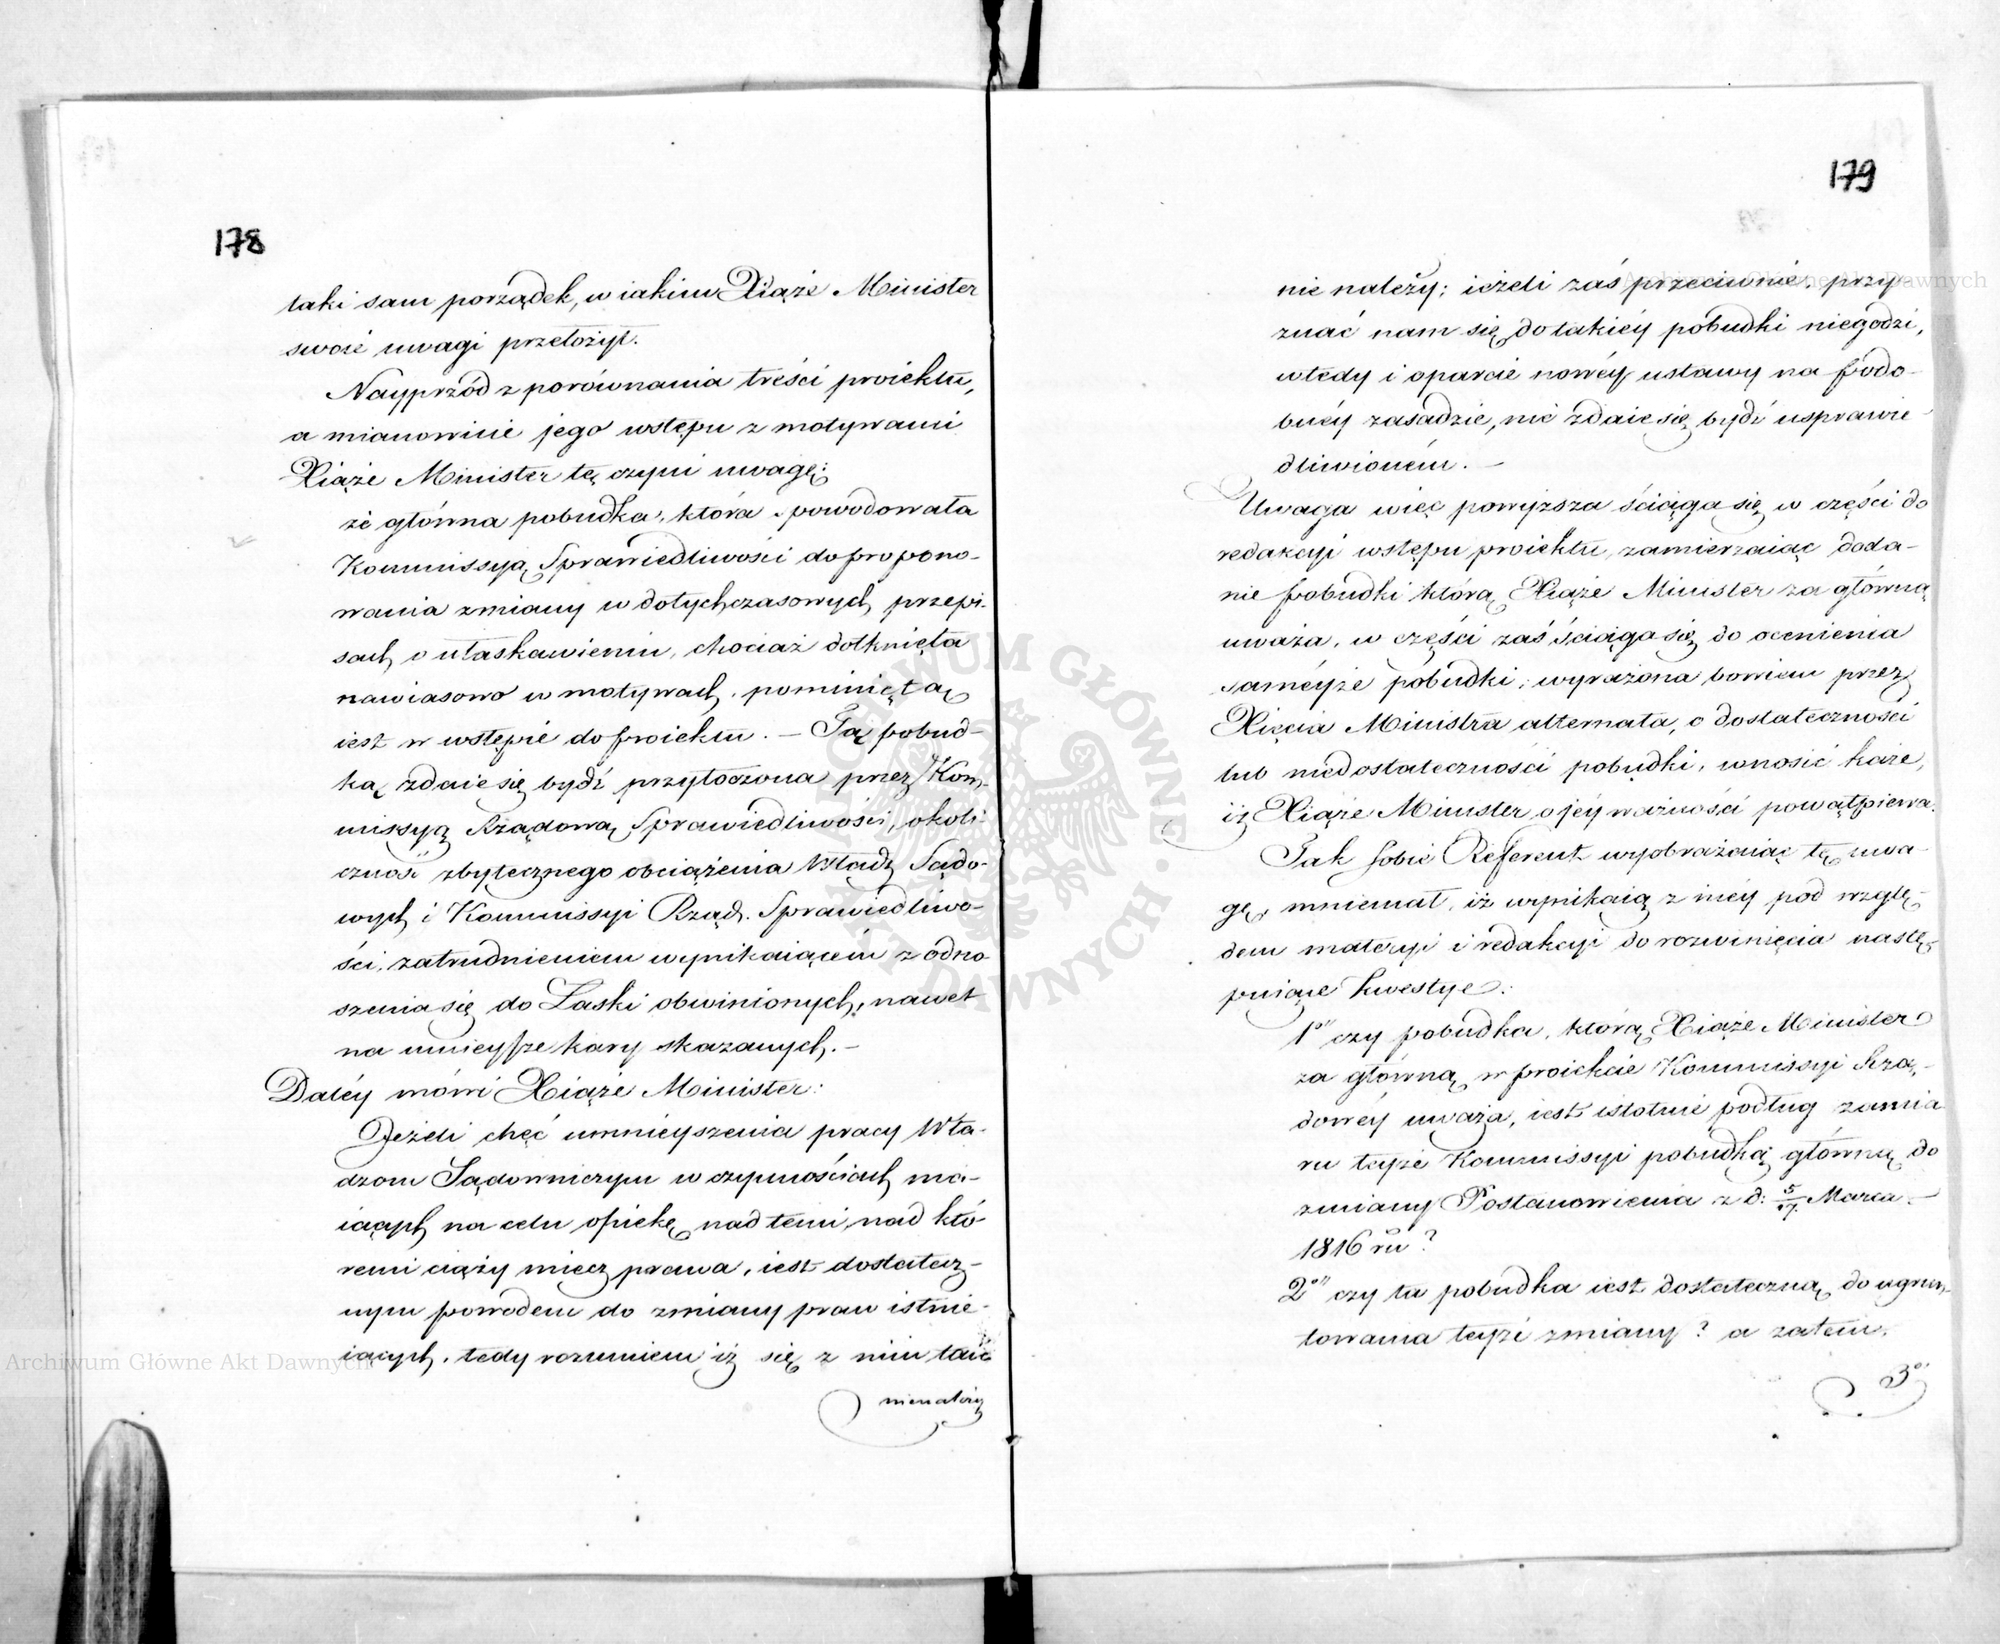 178
taki sam porządek, w iakim Xiąże Minister
swoie uwagi przełożył.
Nayprzód z porównania treści proiektu,
a mianowicie jego wstępu z motywami
Xiąże Minister tę czyni uwagę:
że główna pobudka, która spowodowała
Kommissyą Sprawiedliwości do propono-
wania zmiany w dotychczasowych przepi-
sach o ułaskawieniu, chociaż dotknięta
nawiasowo w motywach, pominiętą
iest w wstępie do proiektu. — Tą pobud-
ką zdaie się bydź przytoczona przez Kom-
missyą Rządową Sprawiedliwości, okoli-
czność zbytecznego obciążenia Władz Sądo-
wych i Kommissyi Rząd. Sprawiedliwo-
ści, zatrudnieniem wynikaiącém z odno-
szenia się do Łaski obwinionych, nawet
na mnieysze kary skazanych. —
Daléy mówi Xiąże Minister:
Jeżeli chęć umnieyszenia pracy Wła-
dzom Sądowniczym w czynnościach ma-
iących na celu opiekę nad temi, nad któ-
remi ciąży miecz prawa, iest dostatecz-
nym powodem do zmiany praw istnie-
iących, tedy rozumiem iż się z nim taić
nienależy
179
nie należy; ieżeli zaś przeciwnie, przy-
znać nam się do takiéy pobudki niegodzi,
wtedy i oparcie nowéy ustawy na podo-
bnéy zasadzie, nie zdaie się bydź usprawie-
dliwioném. —
Uwaga więc powyższa ściąga się w części do
redakcyi wstępu proiektu, zamierzaiąc doda-
nie pobudki którą Xiąże Minister za główną
uważa, w części zaś ściąga się do ocenienia
saméyże pobudki; wyrażona bowiem przez
Xięcia Ministra alternata, o dostateczności
lub niedostateczności pobudki, wnosić każe,
iż Xiąże Minister o jéy ważności powątpiewa.
Tak sobie Referent wyobrażaiąc tę uwa-
gę, mniemał, iż wynikaią z niéy pod wzglę-
dem materyi i redakcyi do rozwinięcia nastę-
puiące kwestye:
1º czy pobudka, którą Xiąże Minister
za główną w proiekcie Kommissyi Rzą-
dowéy uważa, iest istotnie podług zamia-
ru teyże Kommissyi pobudką główną do
zmiany Postanowienia z d: 5/17 Marca
1816 ru?
2º czy ta pobudka iest dostateczną do ugrun-
towania teyże zmiany? a zatém,
3º
Archiwum Główne Akt Dawnych
Archiwum Główne Akt Dawnych
ARCHIWUM GŁÓWNE AKT DAWNYCH